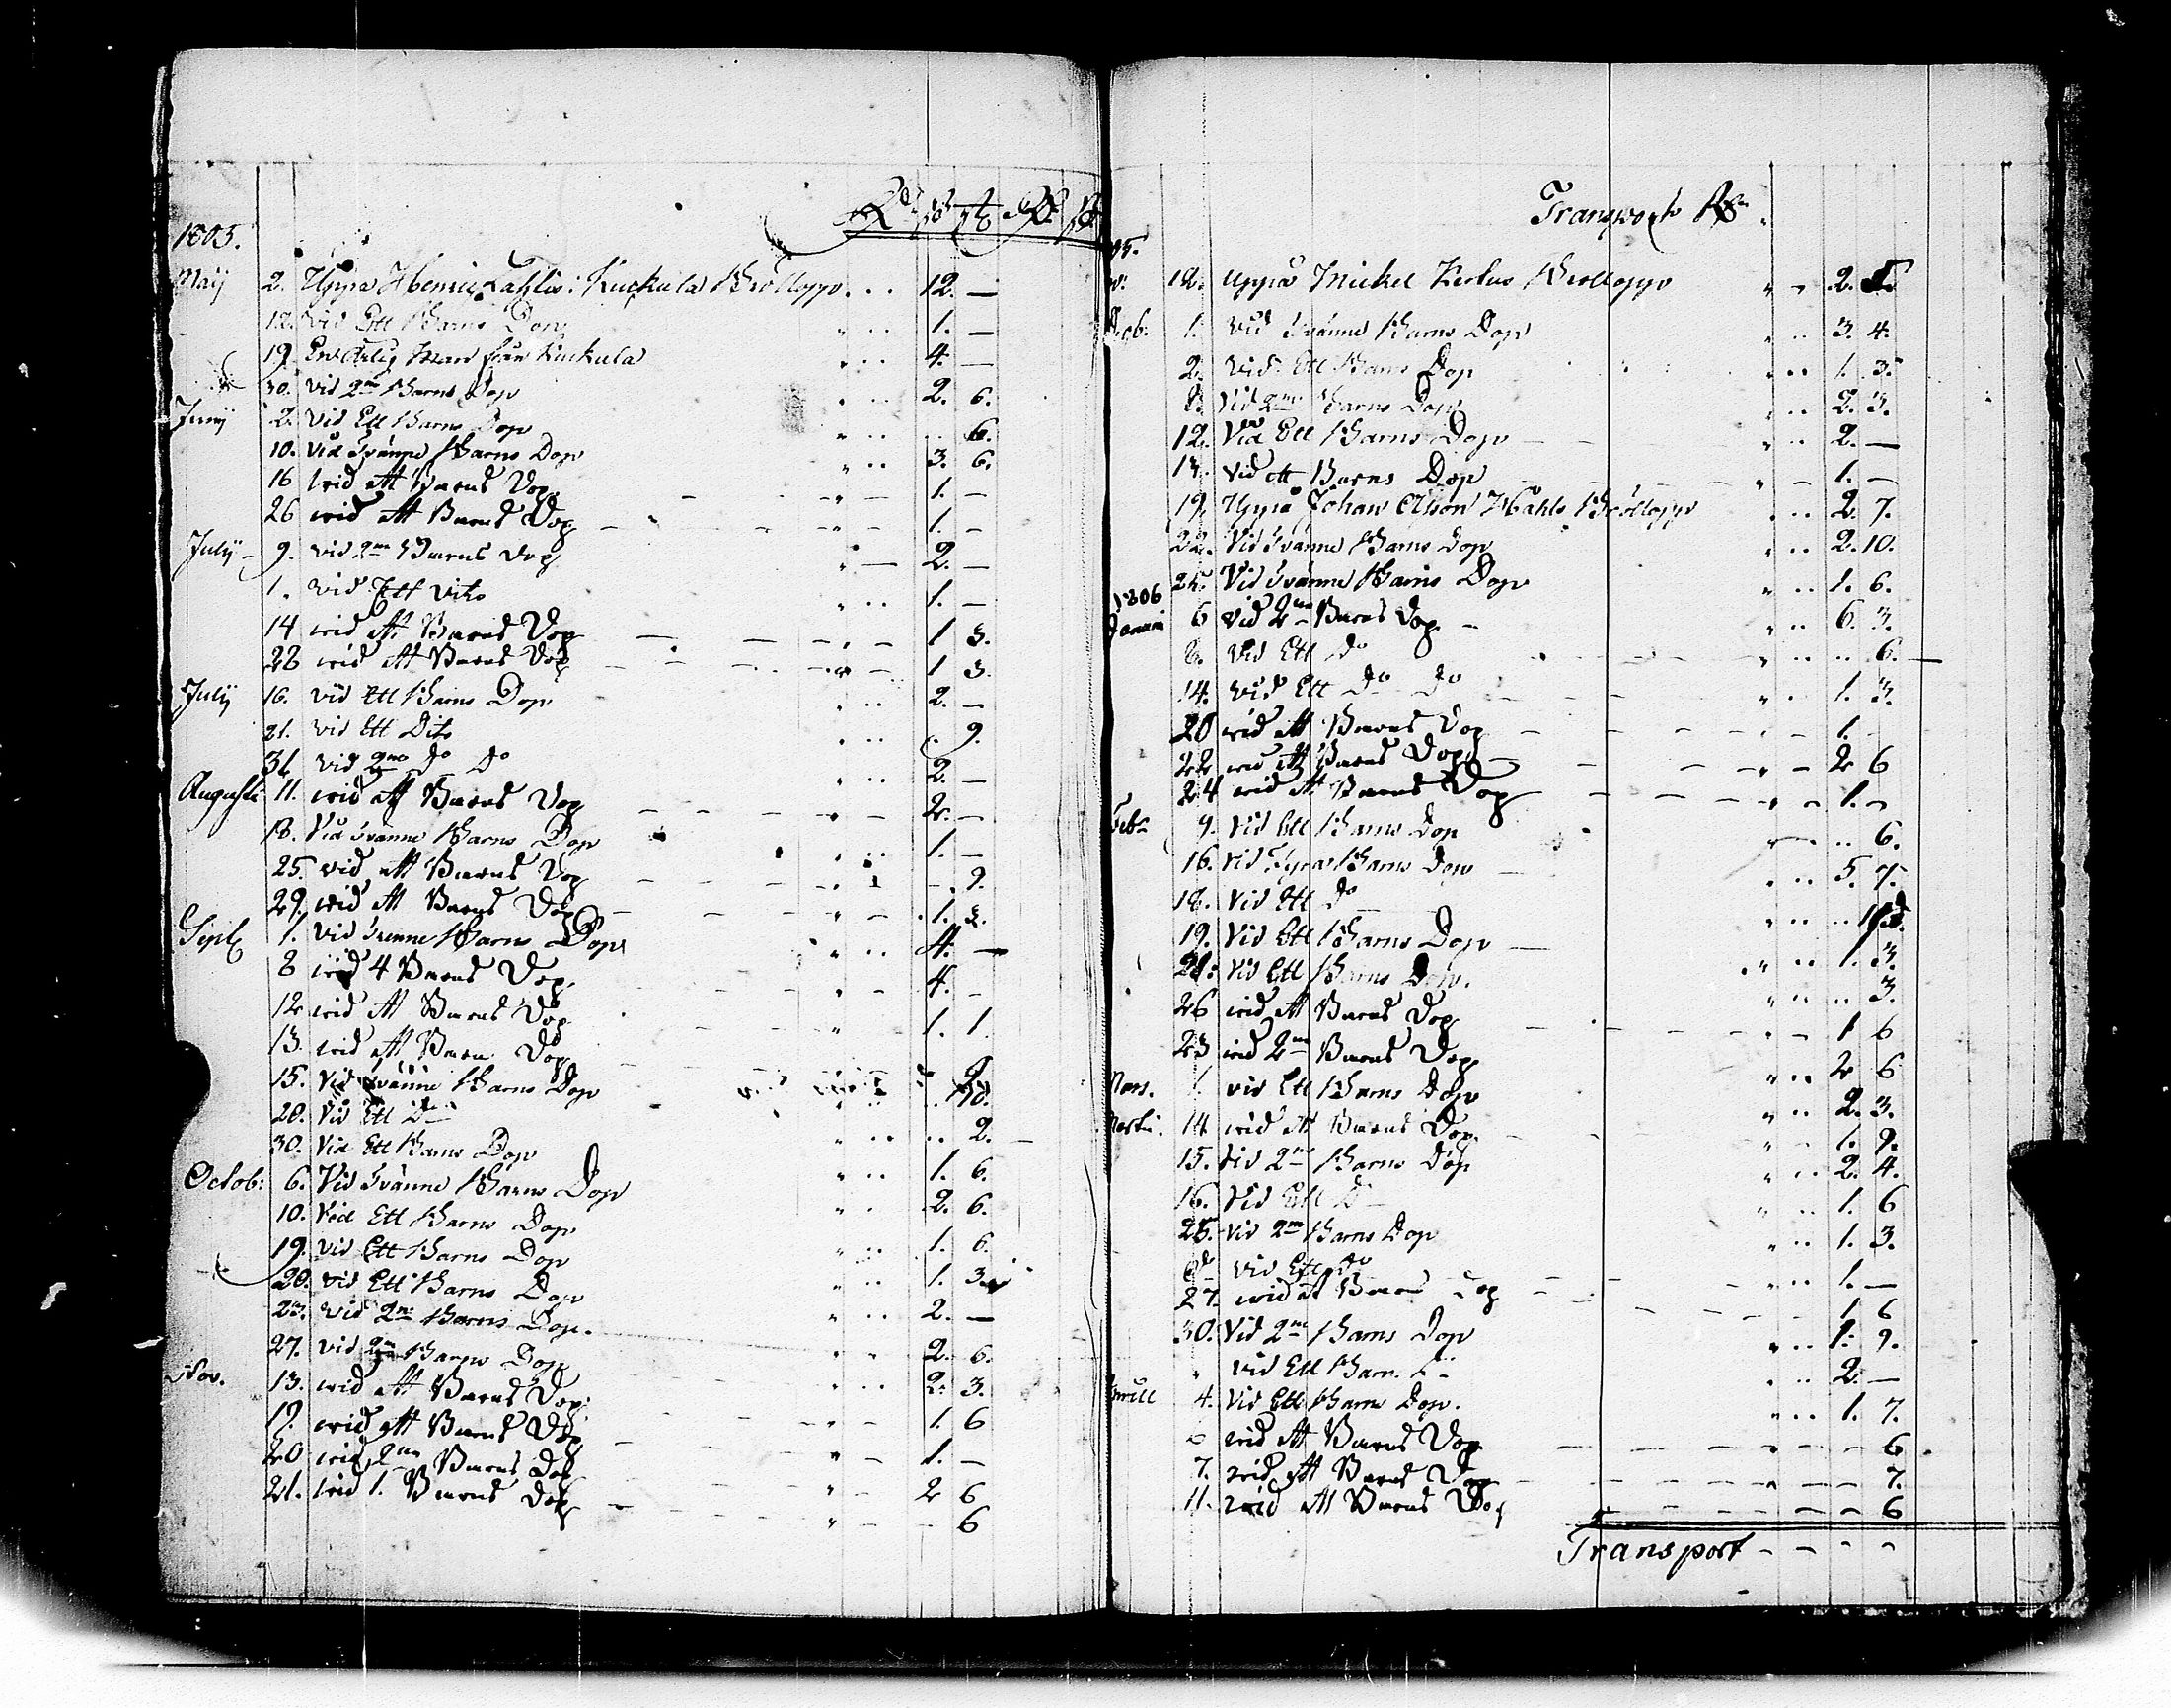 Rd sk rs Rd sk
1805.
Maij 2. Uppå Henric Lahlis: Kuckula Bröllopp . . . 12. —
12. Vid Ett Barns Dop " . . 1. —
19. En ärlig Man från Kuckula " . . 4. —
30. Vid 2ne Barns Dop " . . 2. 6.
Junij 2. Vid Ett Barns Dop " . . . . 6.
10. Vid Tvänne Barns Dop " . . 3. 6.
16 wid ett Barns Dop - " - 1. -
26 wid ett Barns Dop - " - 1. -
Julij 9. vid 2ne Barns Dop " — 2. —
1. vid Ett Dito " . . 1. —
14 wid ett Barns Dop - " - 1 3.
28 wid ett Barns Dop - " - 1 3.
Julij 16. vid Ett Barns Dop " . . 2. —
21. vid Ett Dito " . . . . 9.
31. vid 2ne do do " . . 2. —
Augusti 11. wid ett Barns Dop - " - 2. —
18. Vid Tvänne Barns Dop " . . 1. —
25. vid ett Barns Dop - " - - 9.
29. wid ett Barns Dop - " - 1. 3.
Sept 1. Vid Tvenne Barns Dop " . . 4. —
8 wid 4 Barns Dop. " - 4. -
12 wid ett Barns Dop - " 1. 1
13. wid ett Barns Dop
15. Vid Tvänne Barns Dop " . . . . 10.
20. Vid Ett Do " . . . . 2.
30. Vid Ett Barns Dop " . . 1. 6.
Octob: 6. Vid Tvänne Barns Dop " . . 2. 6.
10. Vid Ett Barns Dop " . . 1. 6.
19. vid Ett Barns Dop " . . 1. 3.
20. vid Ett Barns Dop " . . 2. —
23. Vid 2ne Barns Dop. " . . 2. 6.
27. vid 2ne Barns Dop " . . 2. 3.
Nov. 13. wid ett Barns Dop " - 1. 6
17. wid ett Barns Dop " - 1. -
20 wid 2ne Barns Dop " - 2 6
21. wid 1. Barns Dop " - - 6
Transport
18. Uppå Mickel Bröllopp " - 2.
1. Vid Tvänne Barns Dop " . . 3. 4.
2. Vid Ett Barns Dop " . . 1. 3.
8. Vid 2ne Barns Dop " . . 2. 3.
12. Vid Ett Barns Dop " . . 2. —
Vid ett Barns Dop " - 1. —
19. Uppå Johan Olsson Bröllopp " . . 2. 7.
22. Vid Tvänne Barns Dop " . . 2. 10.
25. Vid Tvänne Barns Dop " . . 1. 6.
1806
6 vid 2ne Barns Dop - " . . 6. 3.
8. Vid Ett do " . . . . 6. —
14. vid Ett do do " . . 1. 3.
20 wid ett Barns Dop - " - 1 -
22 wid ett Barns Dop - " - 2 6
24 wid ett Barns Dop - " - 1. -
Febr 9. Vid Ett Barns Dop . . 6.
16. Vid Fyra Barns Dop " . . 5. 7.
18. Vid Ett do
19. Vid Ett Barns Dop " . . 1. 3.
21. Vid Ett Barns Dop. " . . . . 3.
26 wid ett Barns Dop - " - 1 6
23 wid 2ne Barns Dop " . . 2 6
Mars. 1. vid Ett Barns Dop " . . 2. 3.
14 wid ett Barns Dop. " . . 1. 9.
15. Vid 2ne Barns Dop " . . 2. 4.
16. Vid Ett D " . . 1. 6
25. Vid 2ne Barns Dop " . . 1. 3.
do vid Ett do " . . 1. —
27. wid ett Barns Dop - 1 6
30. Vid 2ne Barns Dop " . . 1. 9.
" vid Ett Barn. " . . 2. —
4. Vid Ett Barns Dop. " . . 1. 7.
6 wid ett Barns Dop - " - - 6
7. wid ett Barns Dop - " - - 7.
11. wid ett Barns Dop - " - - 6
Transport - - - -